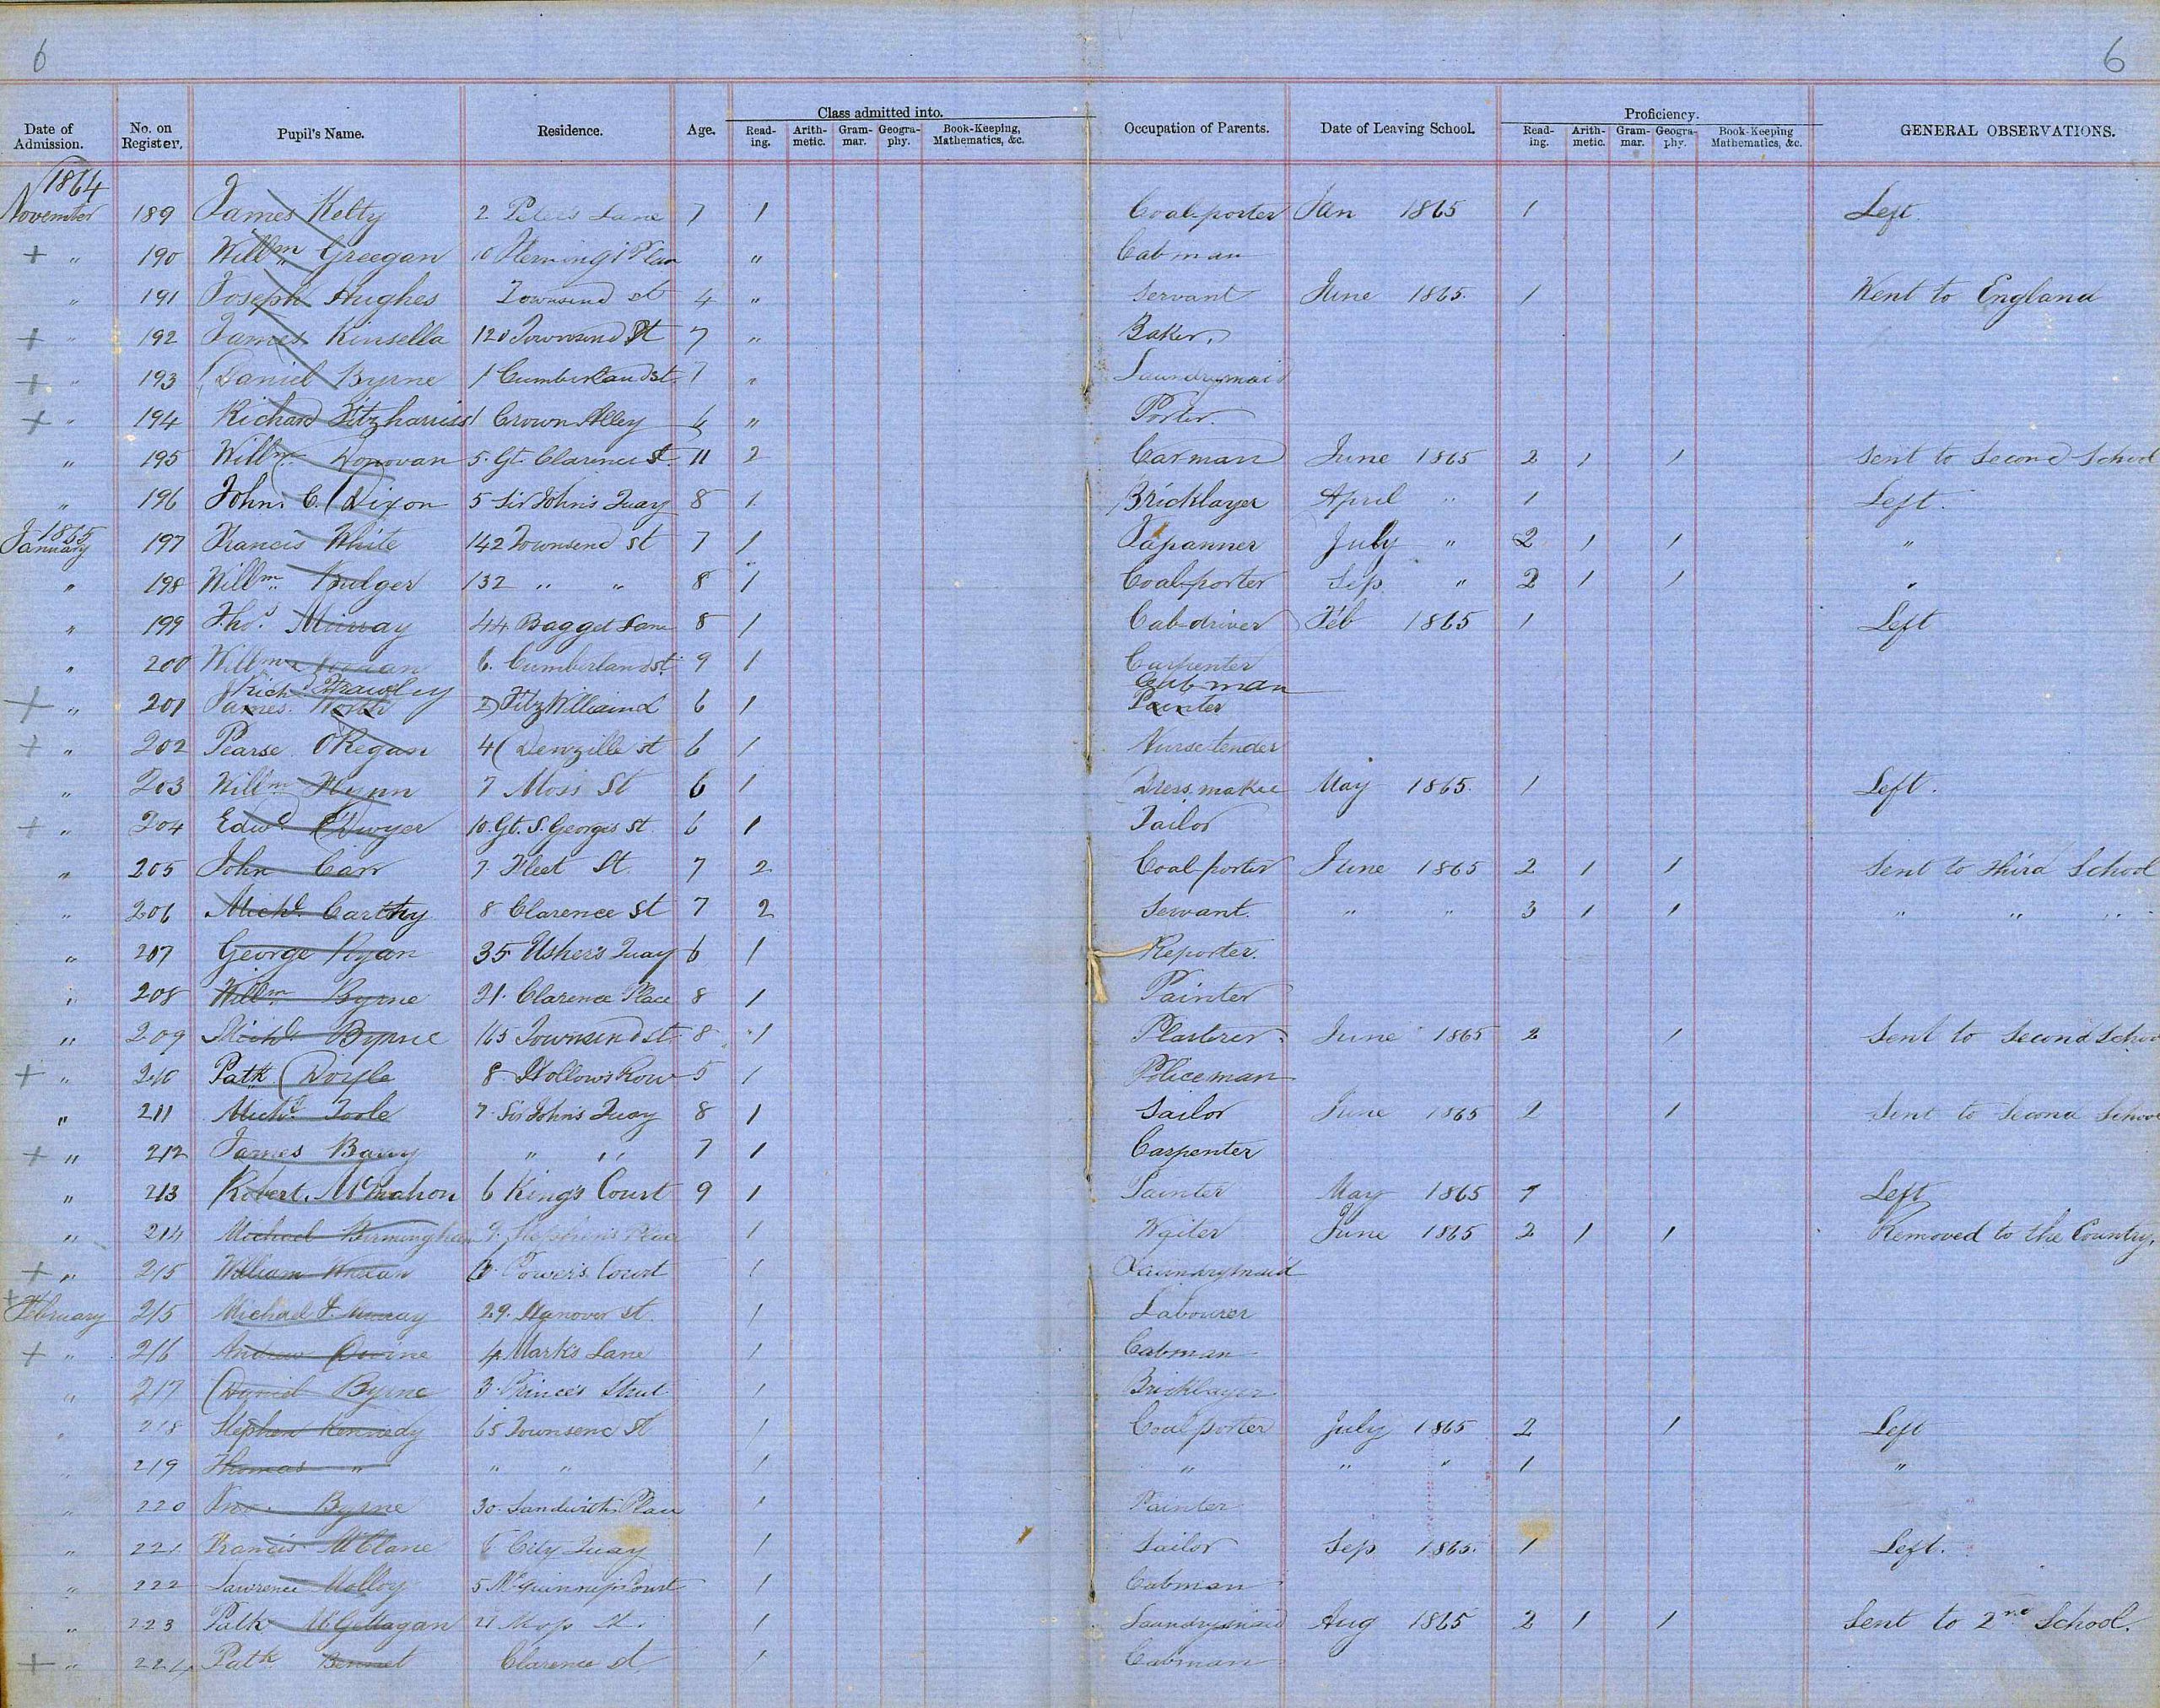 6 6
Class admitted into. Proficiency.
Date of Admission. No. on Register. Pupil's Name. Residence. Age. Read-ing. Arith-metic. Gram-mar. Geogra-phy. Book-Keeping, Mathematics, &c. Occupation of Parents. Date of Leaving School. Read-ing. Arith-metic. Gram-mar. Geogra-phy. Book-Keeping Mathematics, &c. GENERAL OBSERVATIONS.
1864
November 189 James Kelty 2 Peter's Lane 7 1 Coal-porter Jan 1865 1 Left.
+ " 190 Willm Greegan 10 Fleming's Place " Cabman
" 191 Joseph Hughes Townsend st 4 " Servant June 1865. 1 Went to England
+ " 192 James Kinsella 120 Townsend St 7 " Baker.
+ " 193 Daniel Byrne 1 Cumberland st. 7 " Laundrymaid
+ " 194 Richard Fitzharriss 1 Crown Alley 6 " Porter.
" 195 Willm Donovan 5. Gt. Clarence St. 11 2 Carman June 1865 2 1 1 Sent to Second School
" 196 John. C. Dixon 5 Sir John's Quay 8 1. Bricklayer April " 1 Left.
1865
January 197 Francis White 142 Townsend st 7 1 Japanner July " 2 1 1 "
" 198 Willm Bulger 132 " " 8 1 Coal-porter Sep. " 2 1 1 "
" 199 Thos. Murray 44 Baggot Lane 8 1 Cab-driver Feb 1865 1 Left
" 200 Willm 6. Cumberland st. 9 1 Carpenter
Richd Frawley Cabman
+ " 201 James North 2 FitzWilliam L 6 1 Painter
+ " 202 Pearse O'Regan 4 Denzille st 6 1 Nursetender
" 203 Willm Flynn 7 Moss St 6 1 Dressmaker May 1865. 1 Left.
+ " 204 Edwd O'Dwyer 10. Gt. S. Georges st 6 1 Tailor
" 205 John Carr 7. Fleet St. 7 2 Coal-porter June 1865 2 1 1 Sent to third School
" 206 Michl. Carthy 8 Clarence st 7 2 Servant. " " 3 1 1 " " "
" 207 George Ryan 35 Usher's Quay 6 1 Reporter.
" 208 Willm Byrne 21. Clarence Place 8 1 Painter
" 209 Michl. Byrne 165 Townsend st 8 1 Plasterer June 1865 2 1 Sent to Second School
+ " 210 Patk Doyle 8. Hollow's Row 5 1 Policeman
" 211 Michl. Toole 7. Sir John's Quay 8 1 Sailor June 1865 2 1 Sent to Second School
+ " 212 James Barry " " 7 1 Carpenter
" 213 Robert. McMahon 6 King's Court 9 1 Painter May 1865 1 Left
" 214 Michael Birmingham 9. Stephen's Place 1 Waiter June 1865 2 1 1 Removed to the Country.
+ " 215 William Whelan 6. Power's Court 1 Laundrymaid
+ February 215 Michael J. Murray 29. Hanover st. 1 Labourer
+ " 216 Andrew Devine 4 Mark's Lane 1 Cabman
" 217 Daniel Byrne 3. Prince's Street 1 Bricklayer
" 218 Stephen Kennedy 65 Townsend St 1 Coalporter July 1865 2 1 Left
" 219 Thomas " " " 1 " " " 1 "
" 220 Jno. Byrne 30. Sandwith Place 1 Painter
" 221 Francis McClane 6 City Quay 1 Sailor Sep 1865. 1 Left.
" 222 Lawrence Molloy 5 McGuinness Court 1 Cabman
" 223 Patk McGettagan 21 Moss St. 1 Laundrymaid Aug 1865 2 1 1 Sent to 2nd School.
+ " 224 Patk Bennet Clarence st 1 Cabman